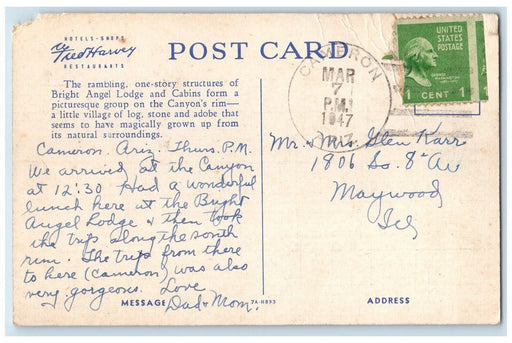 HOTELS-SHOPS
Fred Harvey
RESTAURANTS
POST CARD
The rambling, one-story structures of
Bright Angel Lodge and Cabins form a
picturesque group on the Canyon's rim—
a little village of log, stone and adobe that
seems to have magically grown up from
its natural surroundings.
Cameron. Ariz. Thurs. P.M.
We arrived at the Canyon
at 12:30 Had a wonderful
lunch here at the Bright
Angel Lodge & then took
the trip along the south
rim. The trip from there
to here (Cameron) was also
very gorgeous. Love
Dad & Mom.
MESSAGE
7A-H893
CAMERON
MAR
7
P.M.
1947
ARIZ.
UNITED
STATES
POSTAGE
GEORGE
WASHINGTON
1 CENT 1
Mr. & Mrs. Glen Karr
1806 So. 8th Av
Maywood
Ill
ADDRESS